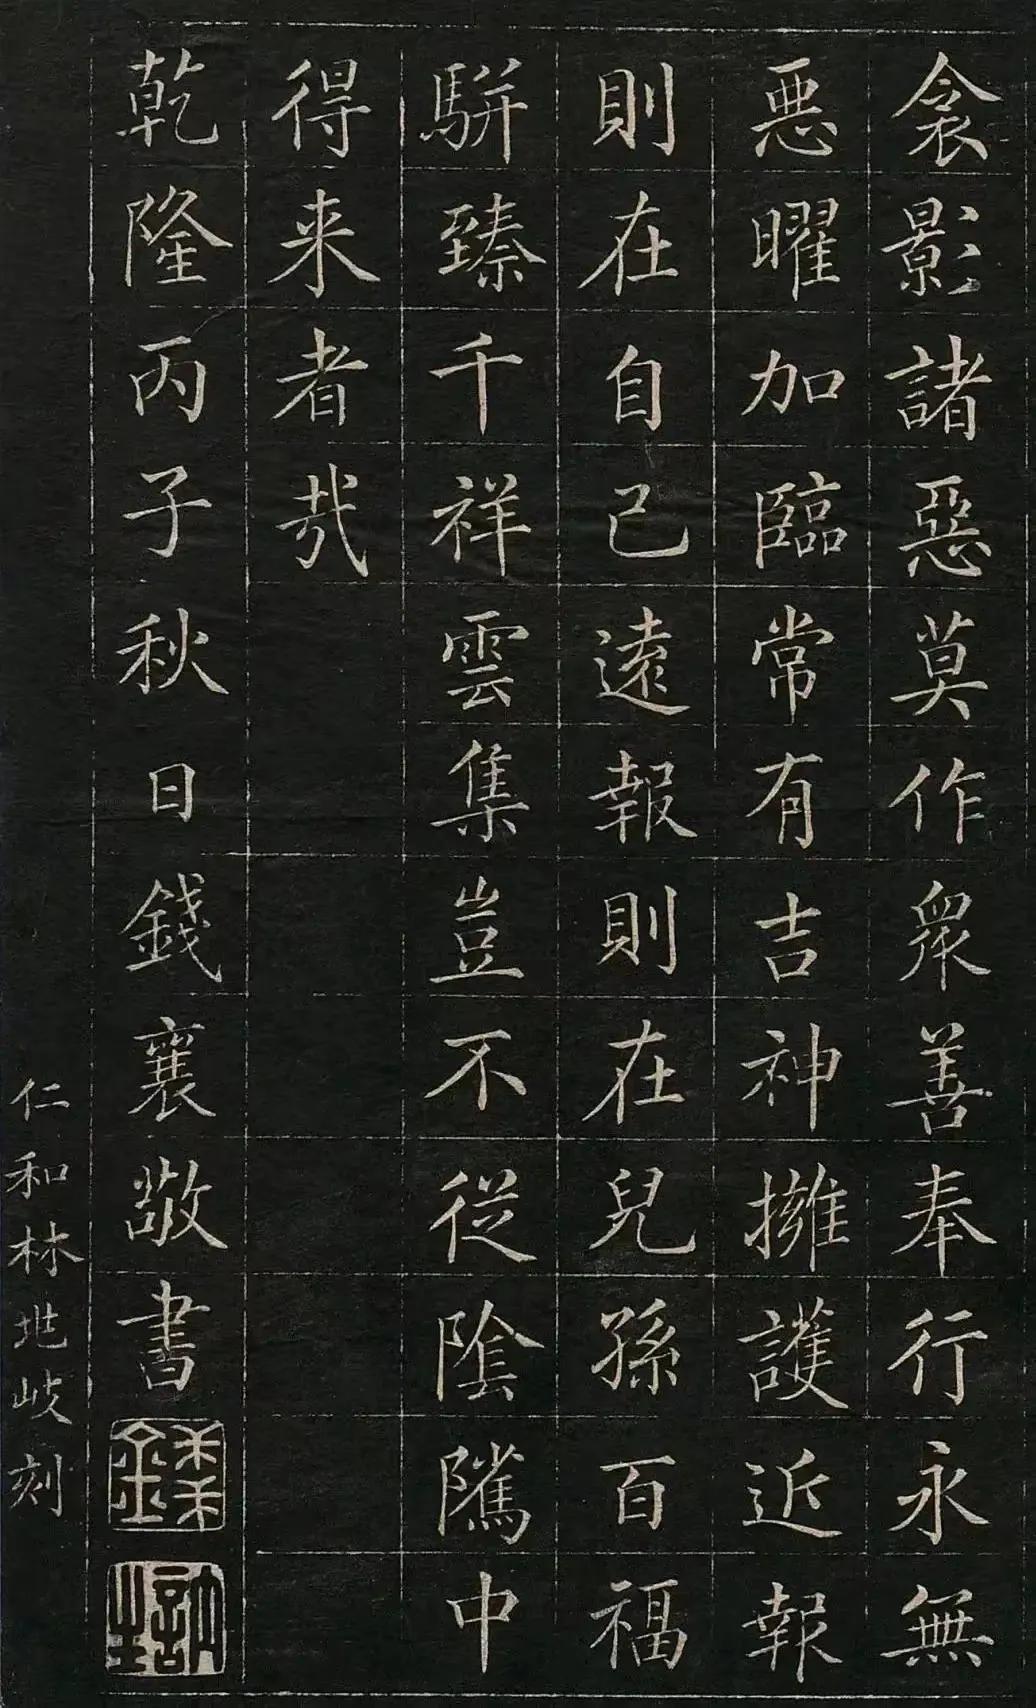 衾影諸惡莫作衆善奉行永無
悪曜加臨常有吉神擁護近報
則在自己遠報則在兒孫百福
駢臻千祥雲集豈不從陰隲中
得来者哉
乾隆丙子秋日錢襄敬書
仁和林地岐刻